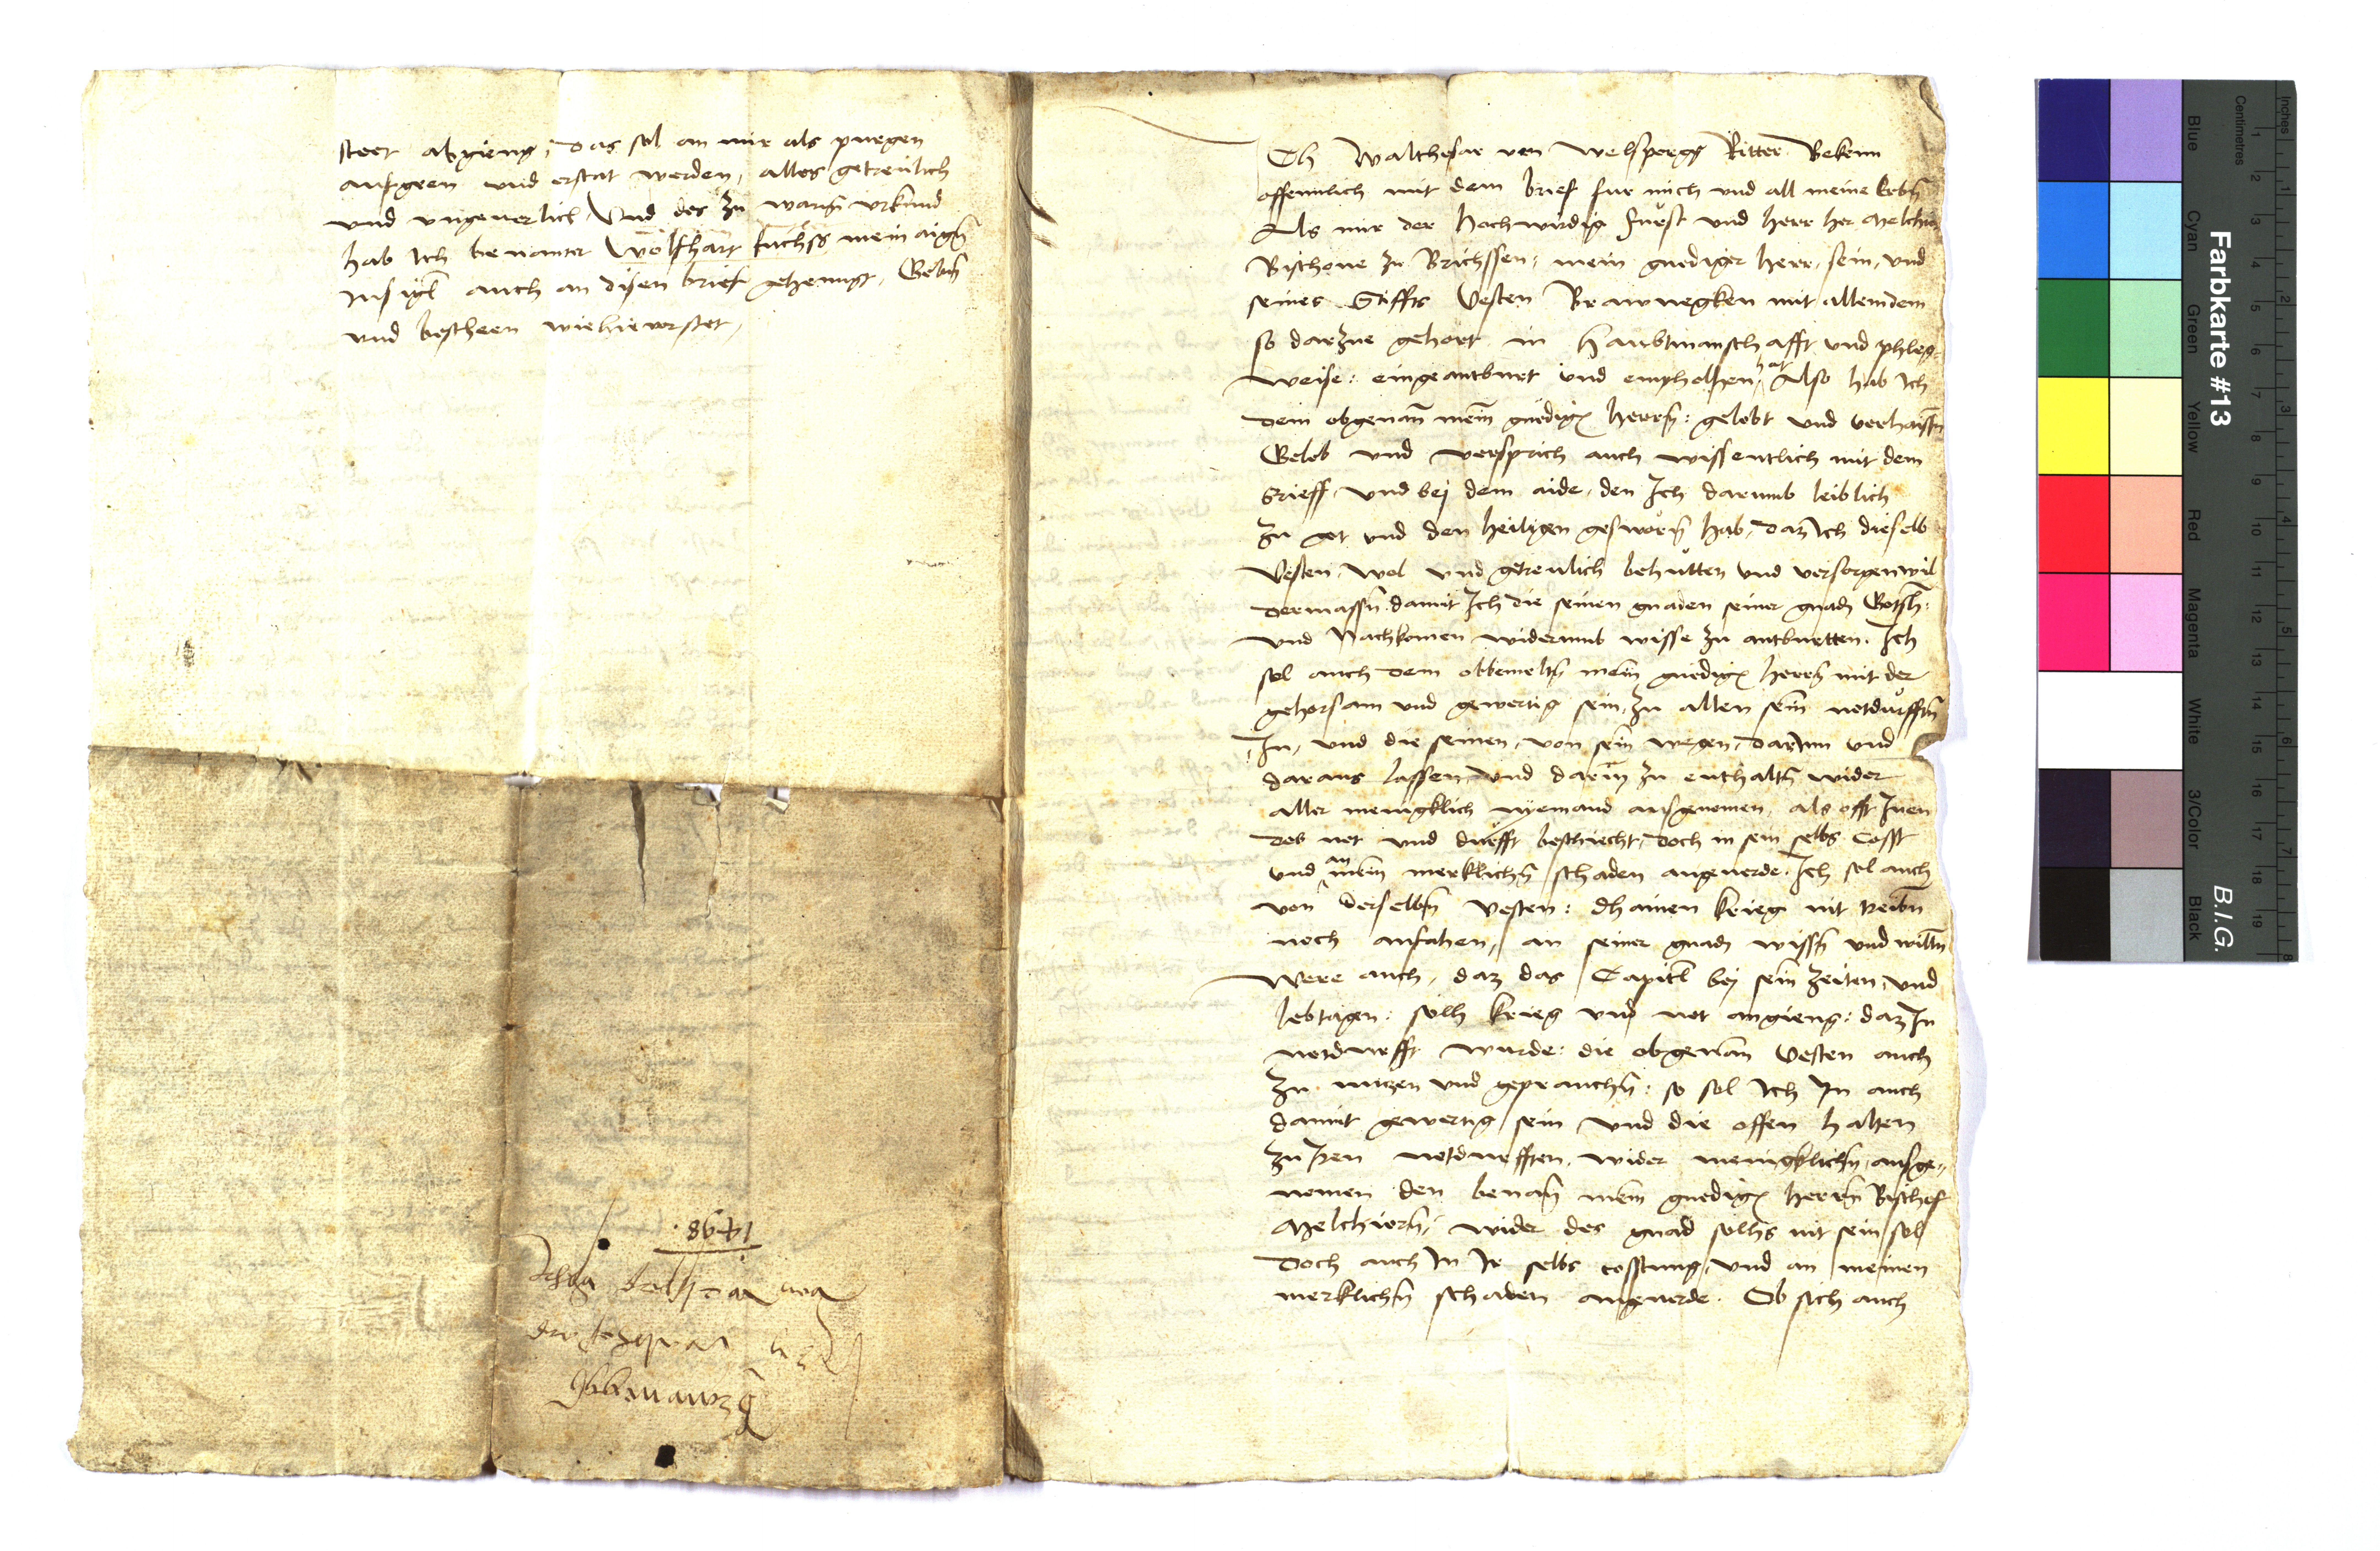 steet abgieng, das sol an mir als purgen
aufgeen und erstat werden, alles getreulich
und ungeuerlich Und des zu warn̄ urkund
hab Ich benanter Wolfhart fuchss mein aign̄
Insigl auch an disen brief gehenngt, Gebn̄
und bescheen wie hieuor stet,
Ch Walthesar von Welsperg Ritter Bekenn
offennlich mit dem brief fur mich und all meine Erbn̄
Als mir der Hochwirdig furst und herr her Melchior
Bischoue zu Brichssen, mein gnediger herr, sein, und
seines Stiffts Vesten Brawnegken mit allem dem
so darzue gehort in Haubtmanschafft und phleg
weise: eingeantburt und empholhen hat Also hab Ich
dem obgenan̄ mein̄ gnedign̄ herrn̄: gelobt und verhaissn̄
Gelob und versprich auch wissentlich mit dem
brieff, und bej dem aide, den Ich darumb leiblich
zu got und den heiligen gesworn̄ hab, daz Ich dieselb
Vesten, wol und getreulich behutten und versorgen wil
dermassn̄ damit Ich die seinen gnaden seiner gnadn̄ Gotsh:
und Nachkomen widerumb wisse zu antburtten. Ich
sol auch dem obbemeltn̄ mein̄ gnedign̄ herrn̄ mit der
gehorsam und gewertig sein, zu allen sein̄ notdurfftn̄
In, und die seinen, von sein̄ wegen, darInn und
daraus lassen und darin̄ zu enthaltn̄ wider
aller menigklich nyemand ausgenomen, als offt Inen
des not und durfft beschiecht, doch in sein selbs Cosst
und an mein̄ merklichn̄ schaden angeuerde. Ich sol auch
von derselbn̄ Vesten: dhainen krieg nit treibn̄
noch anfahen, an seiner gnadn̄ wissn̄ und willn̄
Were auch, daz das Capitl bej sein̄ zeiten, und
lebtagen: solh krieg und not angieng: daz In
notdurfft wurde: die obgenan̄ Vesten auch
zu nutzen und geprauchn̄: so sol Ich In auch
damit gewertig sein und die offen halten
zu Iren notdurfften, wider menigklichn̄, ausge-
nomen den benan̄ mein̄ gnedign̄ herrn̄ Bischof
Melchiorn̄, wider des gnad solhs nit sein sol
doch auch In Ir selbs cosstung, und an meinen
merklichn̄ schaden angeuerde. Ob sich auch
1498.